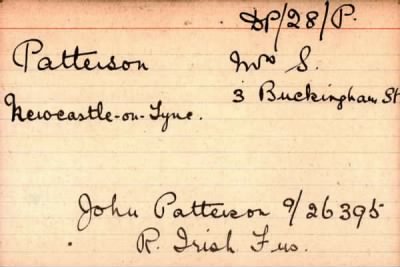 DP/28/P.
Patterson Mrs S.
3 Buckingham St
Newcastle-on-Tyne.
John Patterson 9/26395
R. Irish Fus.